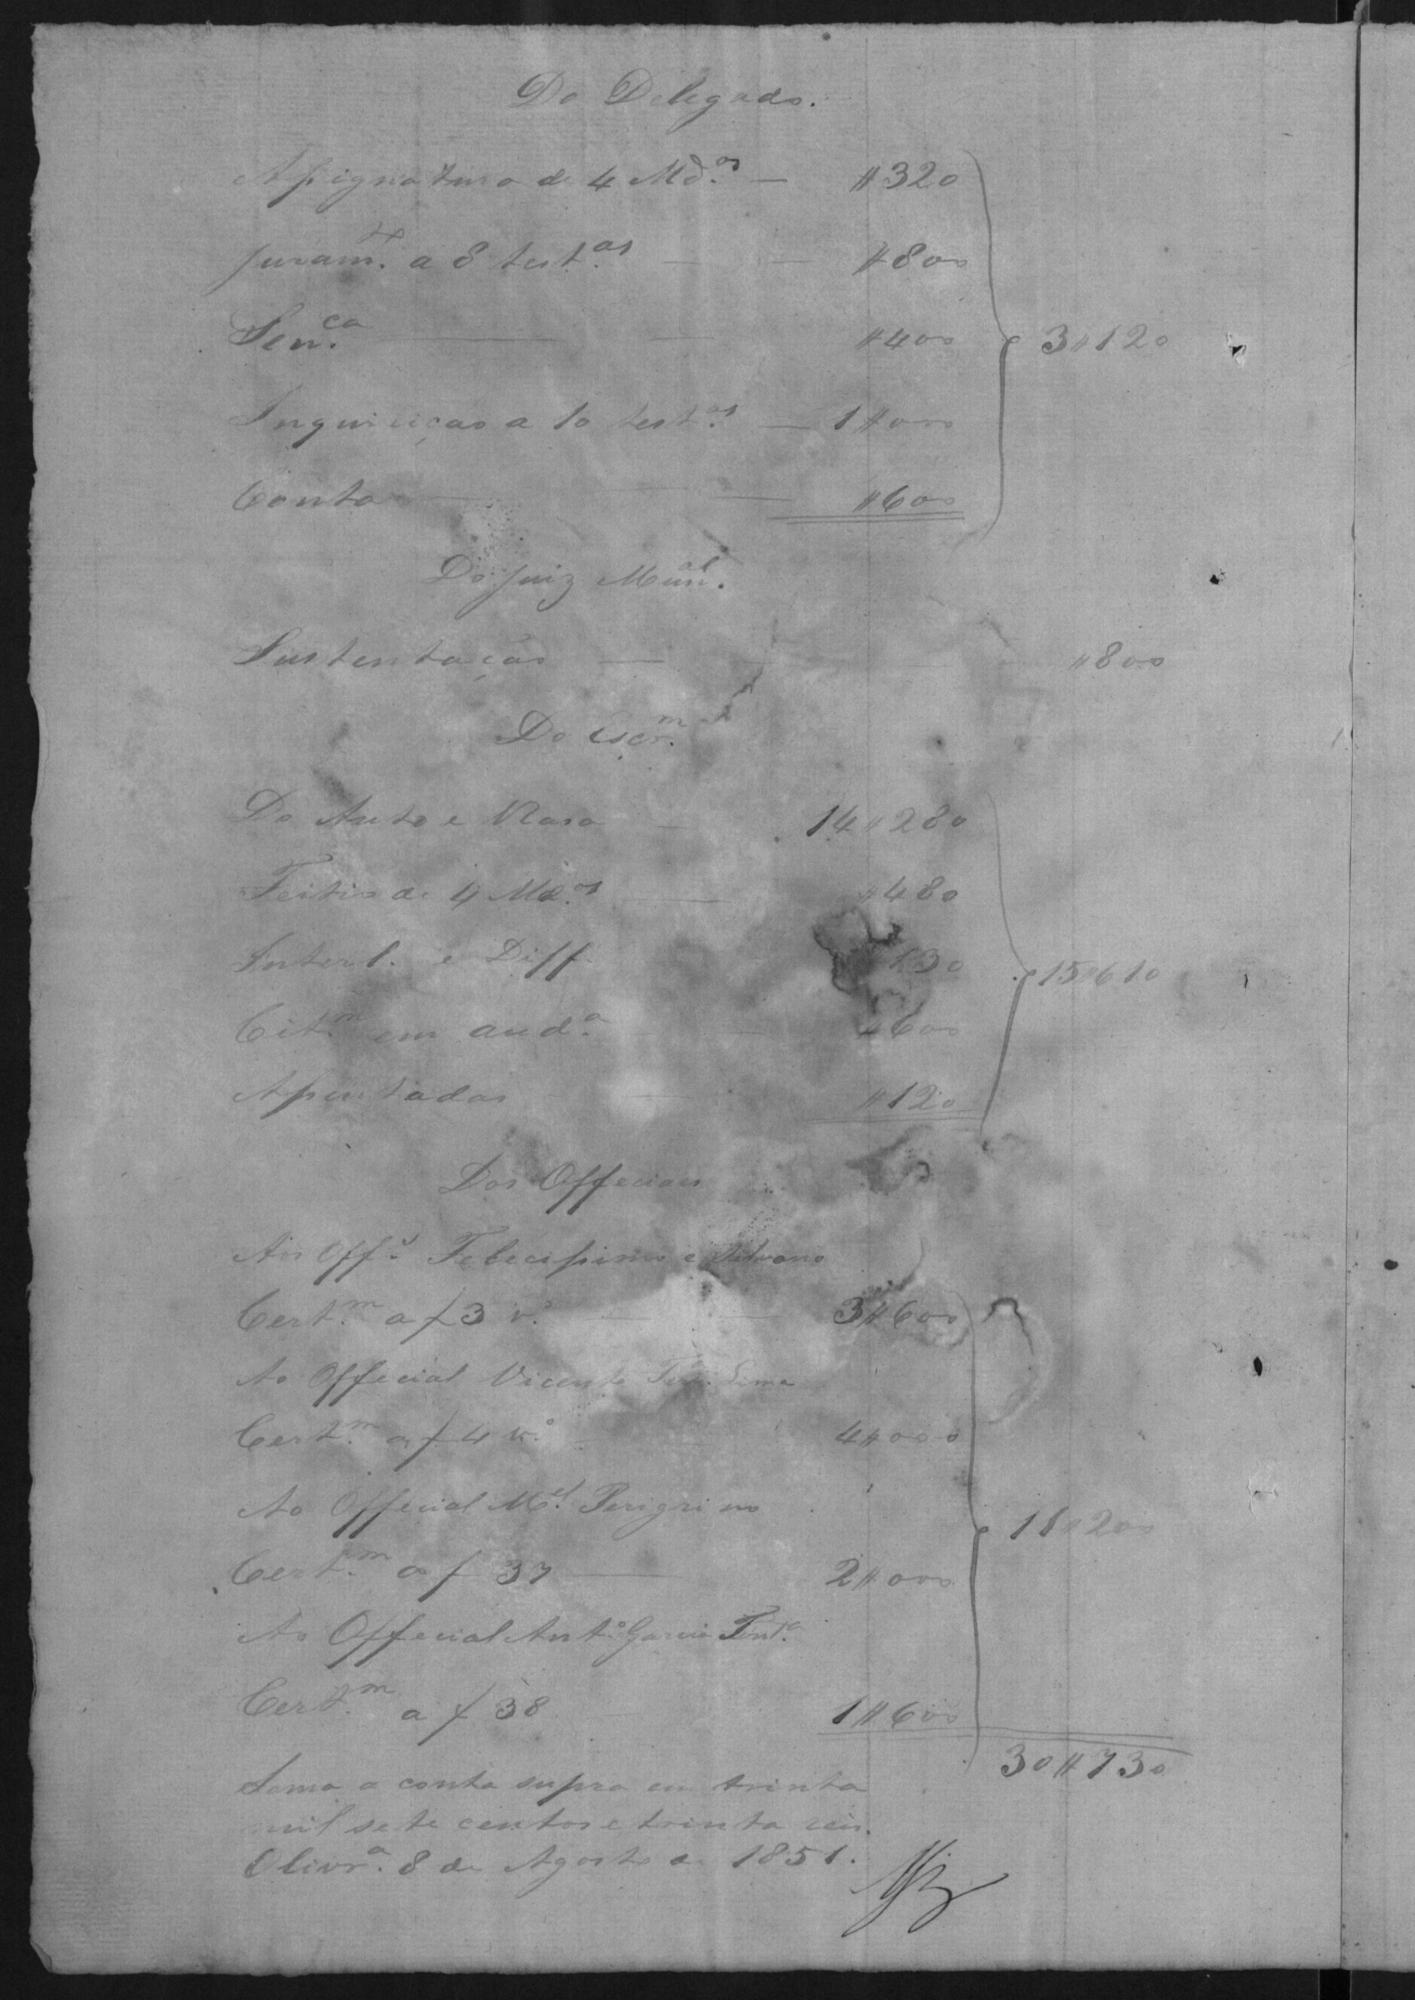 Do Delegado.
Assignatura de 4 Md.os — $320
Juram.to a 8 test.as — — $800
Sen.ca — — $400 3$120
Inquirição a 10 test.as — 1$000
Conta — — $600
Do Juiz Mun.al
Sustentação — $800
Do Escr.m
Do Auto e Rasa — 14$280
Feitio de 4 Md.os — $480
Interl. e Diff. 130 15$610
Cit.m em aud.a $600
Assentadas $120
Dos Officiaes
Aos Off.s Felecissimo e
Cert.m a f 3 v.o — — 3$600
Ao Official Vicente Lima
Cert.m a f 4 v.o 4$000
Ao Official M.el Perigrino
11$200
Cert.m a f 37 — 2$000
Ao Official Ant.o Garcia
Cert.m a f 38 1$600
30$730
Soma a conta supra em trinta
mil sete centos e trinta reis.
Olivr.a 8 de Agosto de 1851.